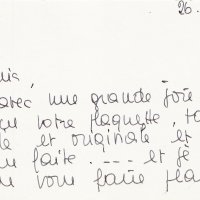 26.
avec une grande joie
votre plaquette, to
et originale et
faite . --- et je
vous faire pla